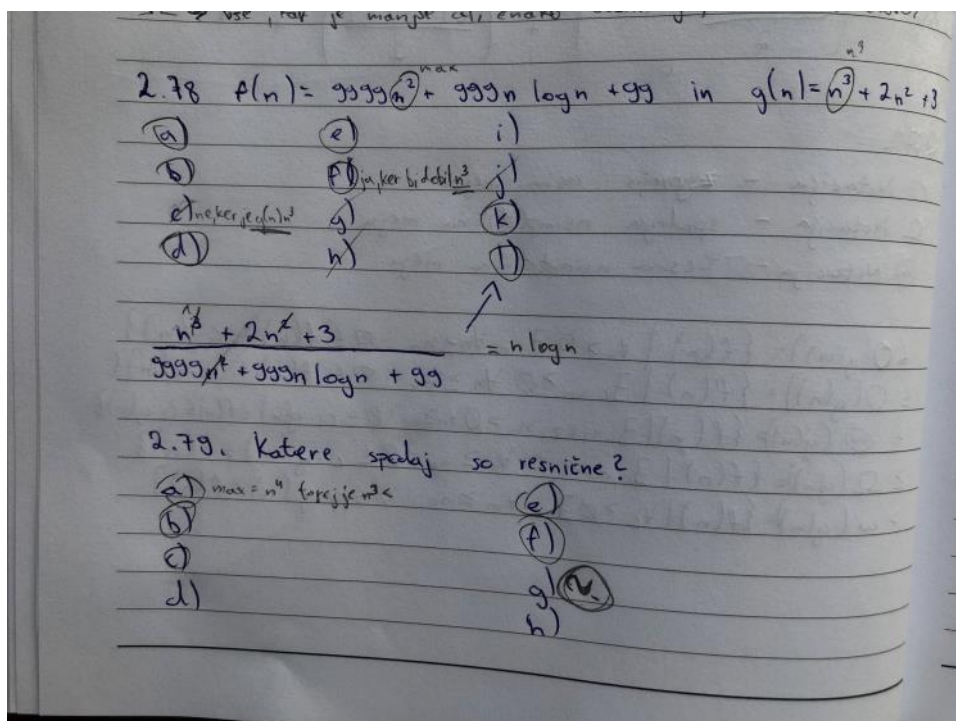 vse, manjše ali enako
max
n³
2.78 f(n) = 9999n² + 999n log n + 99 in g(n) = n³ + 2n² + 3
a) e) i)
b) f) ja, ker bi dobil n³ j)
c) ne, ker je g(n) n³ g) k)
d) h) l)
n³ + 2n² + 3
9999n² + 999n log n + 99 = n log n
2.79. Katere spodaj so resnične?
a) max = n⁴ torej je n³ < e)
b) f)
c) g)
d) h)